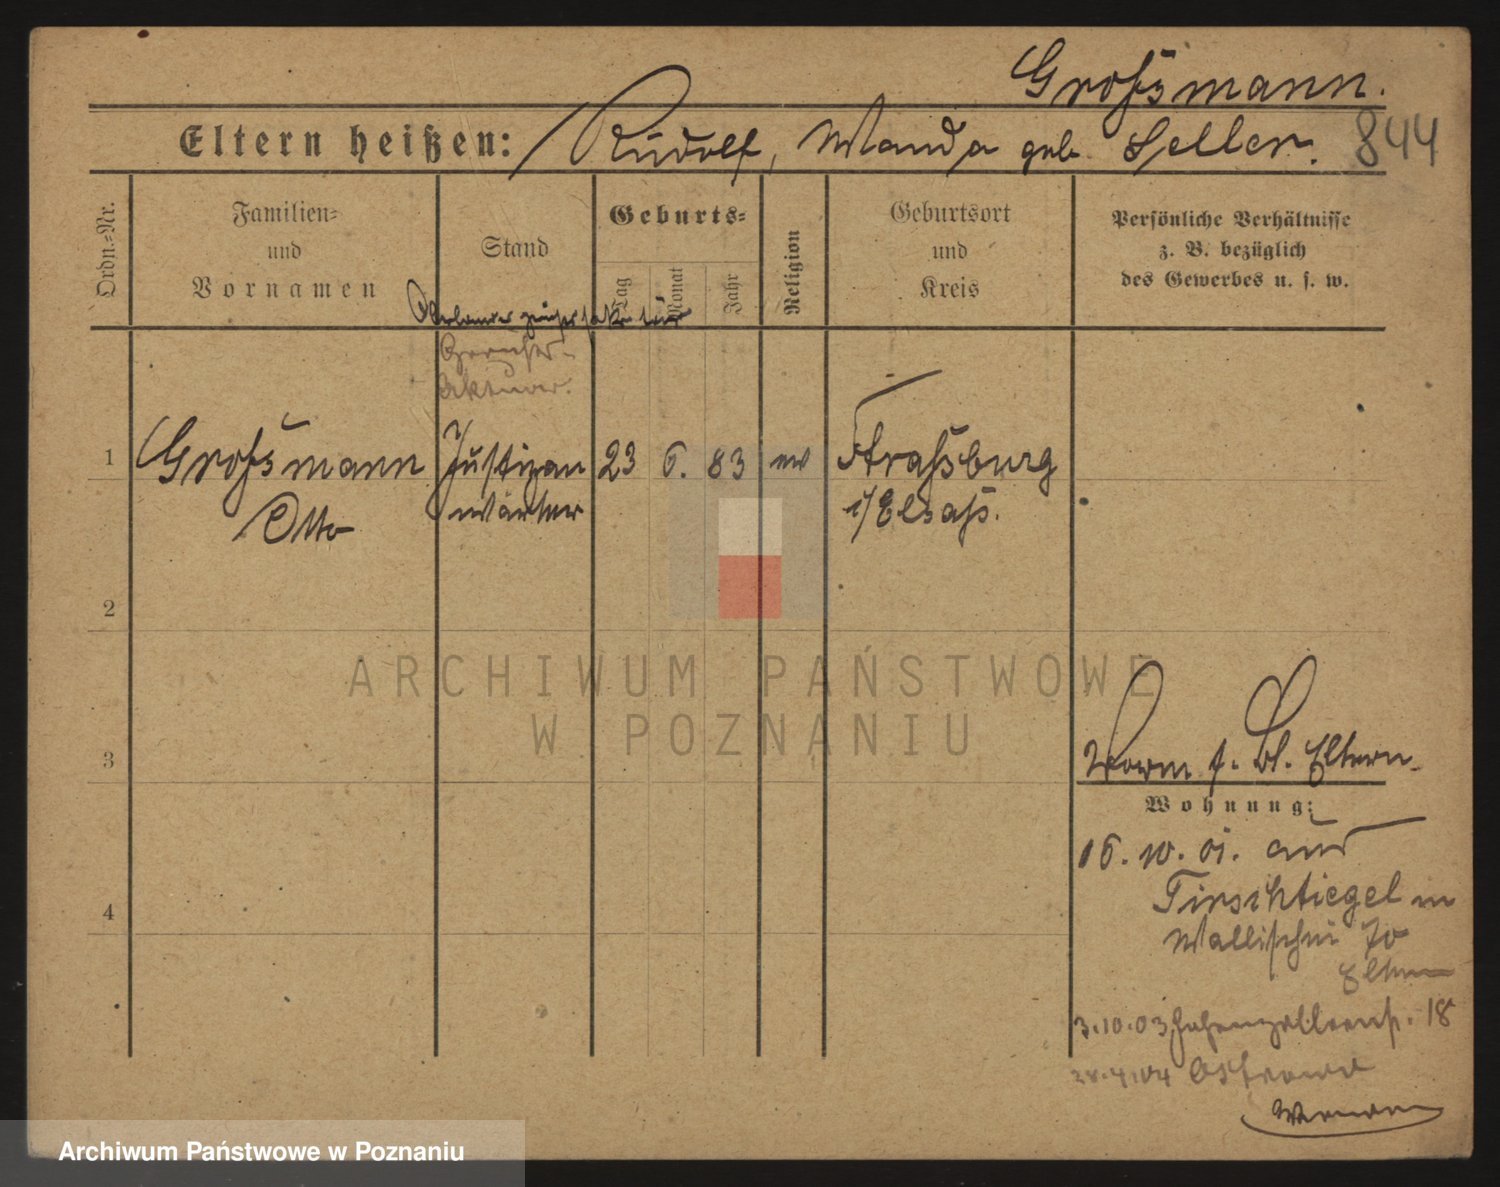 Großmann.
Eltern heißen: Rudolf, Wanda geb. Seller. 844
Ordn.=Nr.
Familien=
und
Vornamen
Stand
Geburts=
Tag
Monat
Jahr
Religion
Geburtsort
und
Kreis
Persönliche Verhältnisse
z. B. bezüglich
des Gewerbes u. s. w.
Gerichts-
Aktuar.
1 Großmann Justizan 23 6. 83 ev Straßburg
Otto wärter i/Elsaß.
2
ARCHIWUM PAŃSTWOWE
W POZNANIU
3
Eltern.
Wohnung:
16. 10. 01. aus
Tirschtiegel in
Wallischei 70
Eltern
3.10.03 Hohenzollernstr. 18
4.04 Ostrowo
4
Archiwum Państwowe w Poznaniu